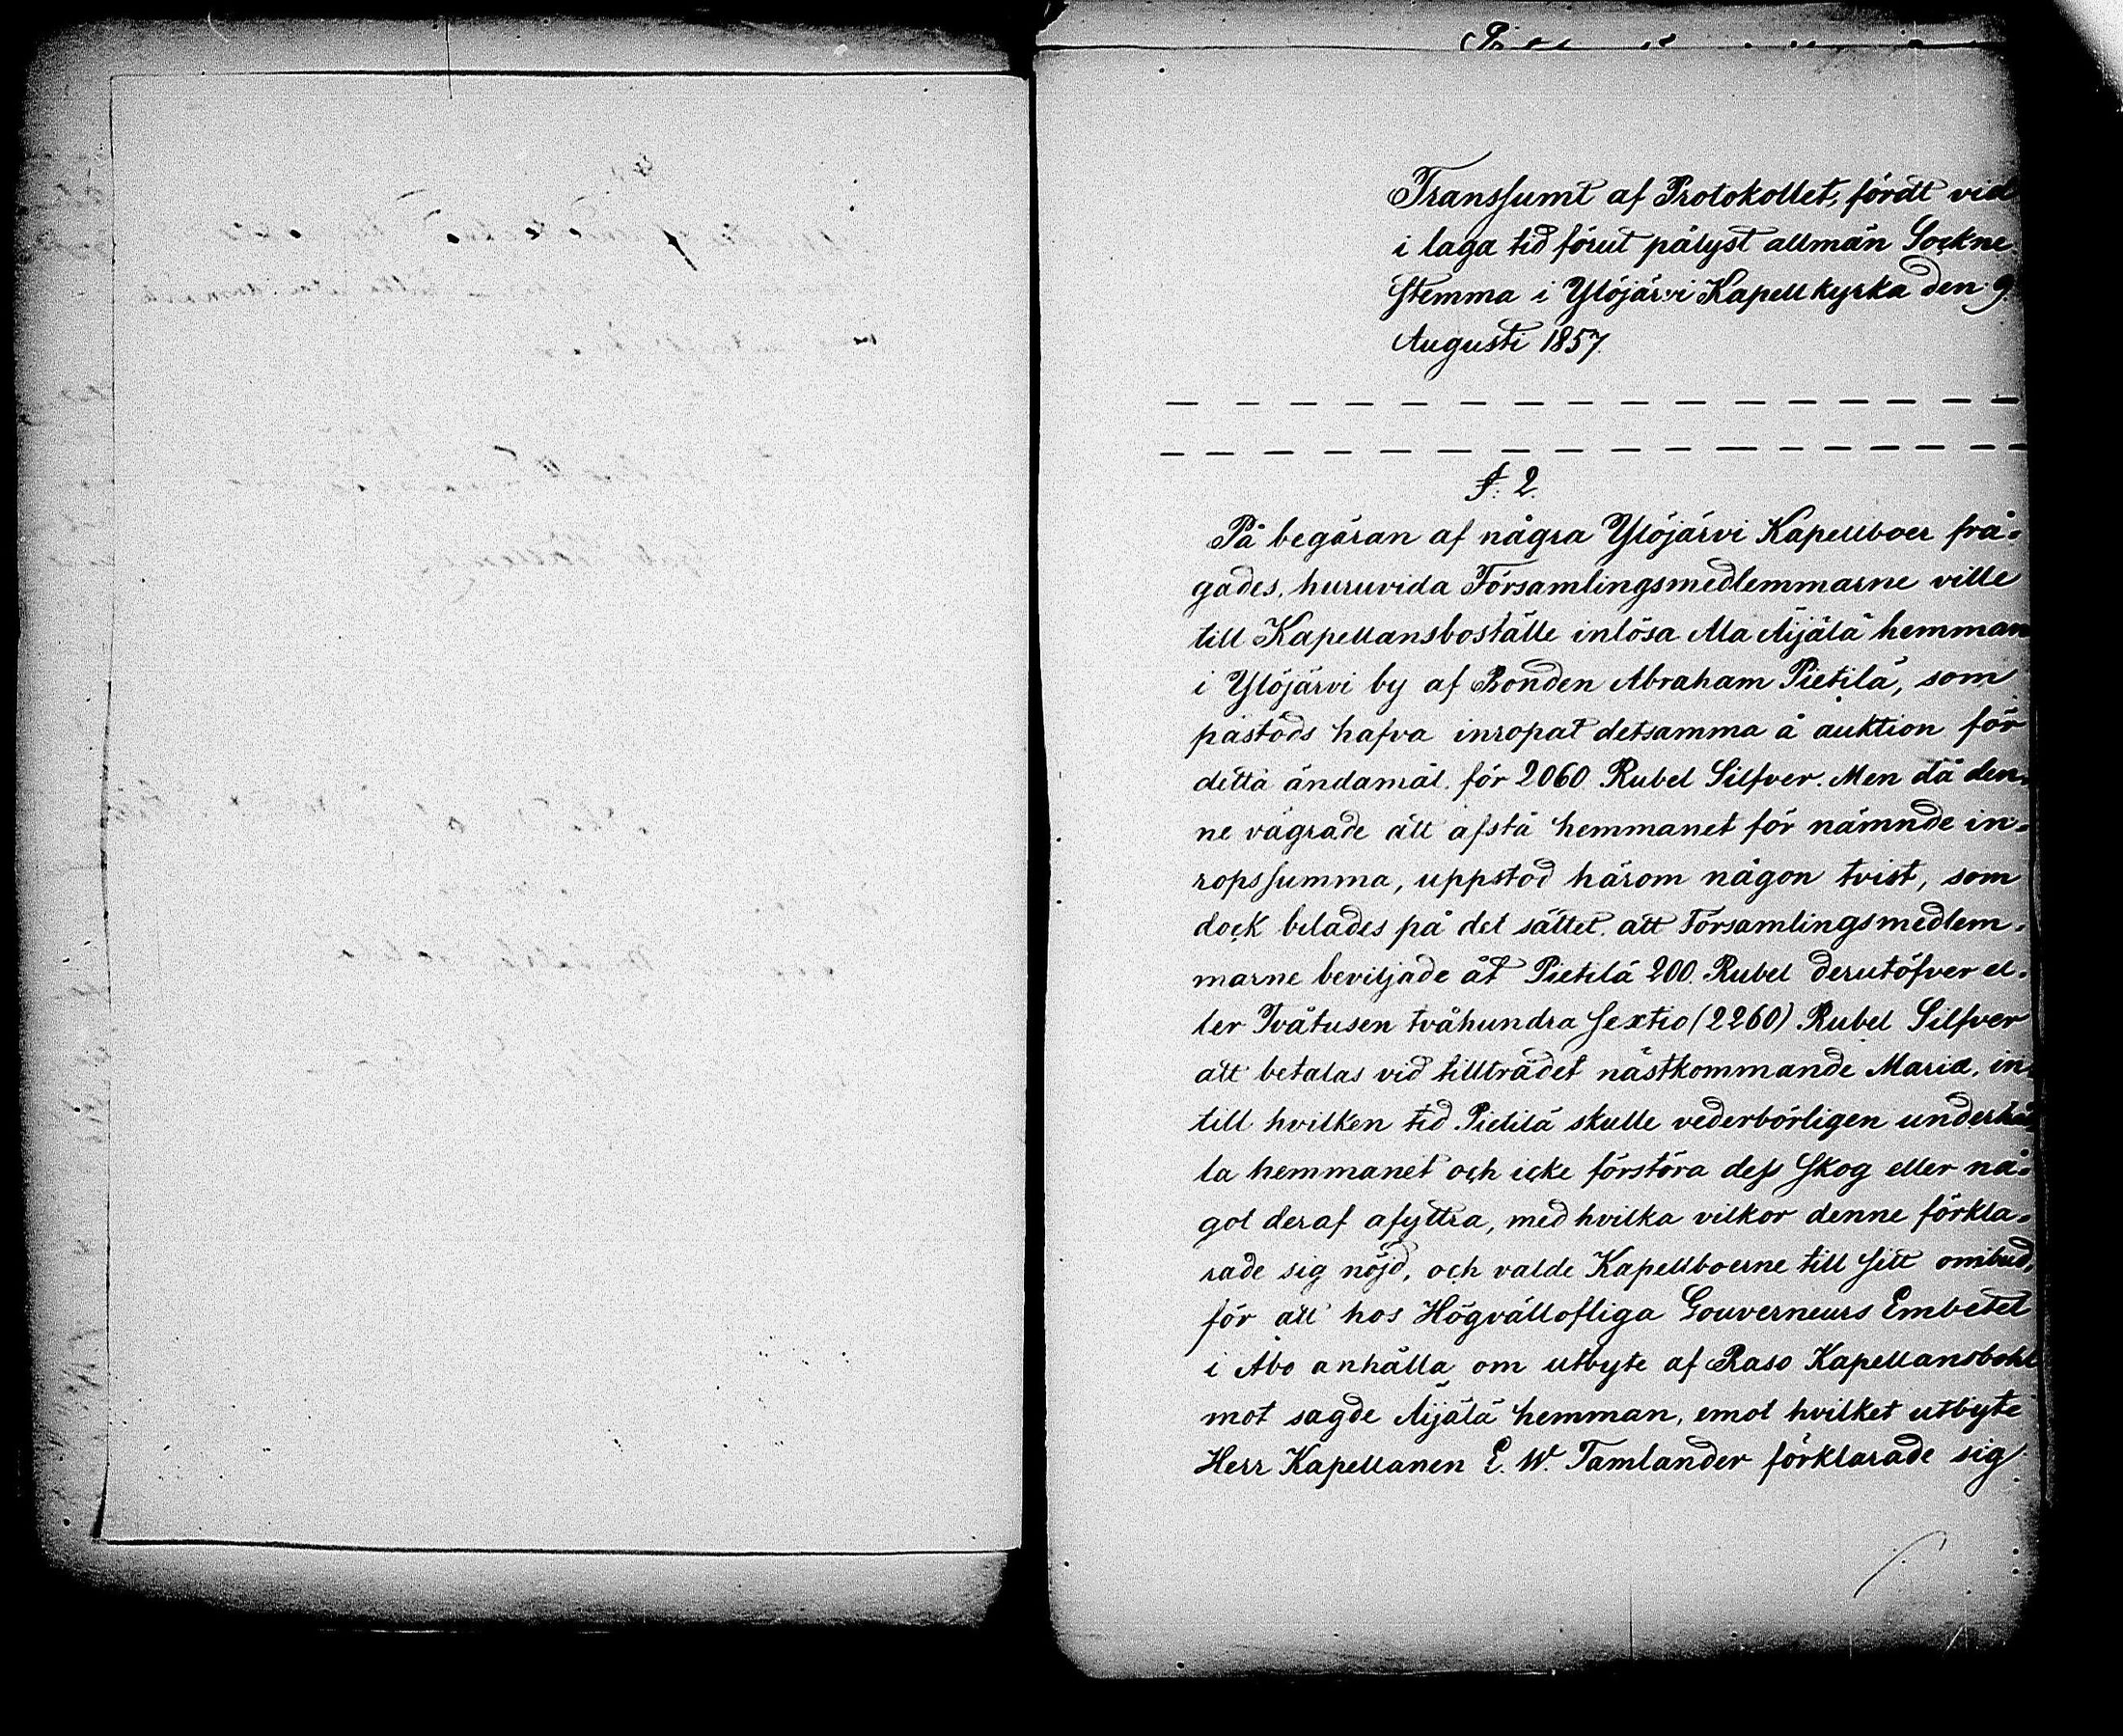 Transsumt af Protokollet, fördt vid
i laga tid förut pålyst allmän Sockne
stemma i Ylöjärvi Kapellkyrka den 9
Augusti 1857.
§. 2.
På begäran af några Ylöjärvi Kapellboer frå-
gades, huruvida Församlingsmedlemmarne ville
till Kapellansboställe inlösa Ala Äijälä hemman
i Ylöjärvi by af Bonden Abraham Pietilä, som
påstods hafva inropat detsamma å auktion för
detta ändamål för 2060 Rubel Silfver. Men då den-
ne vägrade att afstå hemmanet för nämnde in-
ropssumma, uppstod härom någon tvist, som
dock bilades på det sättet, att Församlingsmedlem-
marne beviljade åt Pietilä 200 Rubel derutöfver el-
ler Tvåtusen tvåhundra sextio (2260) Rubel Silfver
att betalas vid tillträdet nästkommande Mariæ, in-
till hvilken tid Pietilä skulle vederbörligen underhål-
la hemmanet och icke förstöra dess skog eller nå-
got deraf afyttra, med hvilka vilkor denne förkla-
rade sig nöjd, och valde Kapellboerne till sitt ombud,
för att hos Högvällofliga Gouverneurs Embetet
i Åbo anhålla om utbyte af Raso Kapellansbohl
mot sagde Äijälä hemman, emot hvilket utbyte
Herr Kapellanen E. W. Tamlander förklarade sig